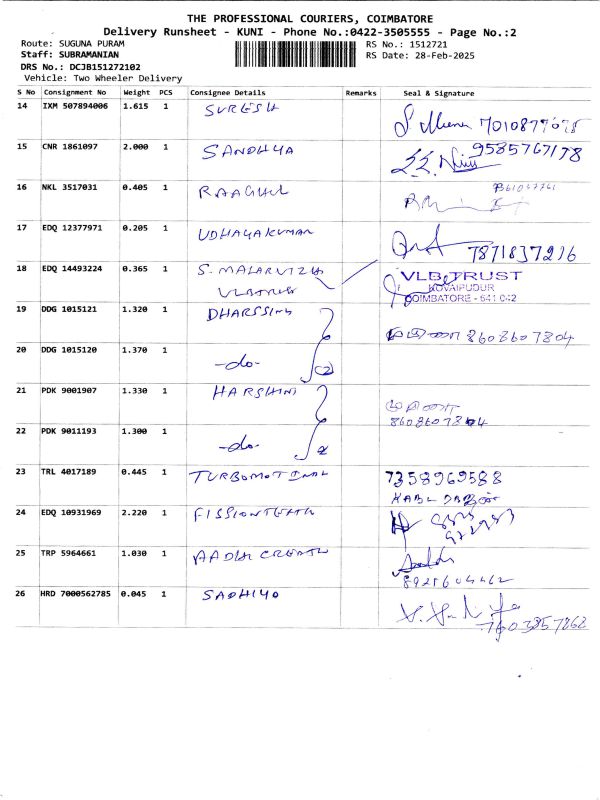 THE PROFESSIONAL COURIERS, COIMBATORE
Delivery Runsheet - KUNI - Phone No.:0422-3505555 - Page No.:2
Route: SUGUNA PURAM
RS No.: 1512721
Staff: SUBRAMANIAN
RS Date: 28-Feb-2025
DRS No.: DCJB151272102
Vehicle: Two Wheeler Delivery
S No Consignment No Weight PCS Consignee Details Remarks Seal & Signature
14 IXM 507894006 1.615 1 SURESH
15 CNR 1861097 2.000 1 SANDHYA 9585767178
16 NKL 3517031 0.405 1 RAAGHUL
17 EDQ 12377971 0.205 1 UDHAYAKUMAR 7871837216
18 EDQ 14493224 0.365 1 S. MALARVIZH VLB TRUST
KOVAIPUDUR
COIMBATORE - 641 042
19 DDG 1015121 1.320 1 DHARSSINI 8608607804
20 DDG 1015120 1.370 1 -do- (2)
21 PDK 9001907 1.330 1 HARSHINI
8608607804
22 PDK 9011193 1.300 1 -do-
23 TRL 4017189 0.445 1 TURBOMOTINAL 7358969588
24 EDQ 10931969 2.220 1
25 TRP 5964661 1.030 1 AADHI
8921604462
26 HRD 7000562785 0.045 1 SADHIYO
7603857862